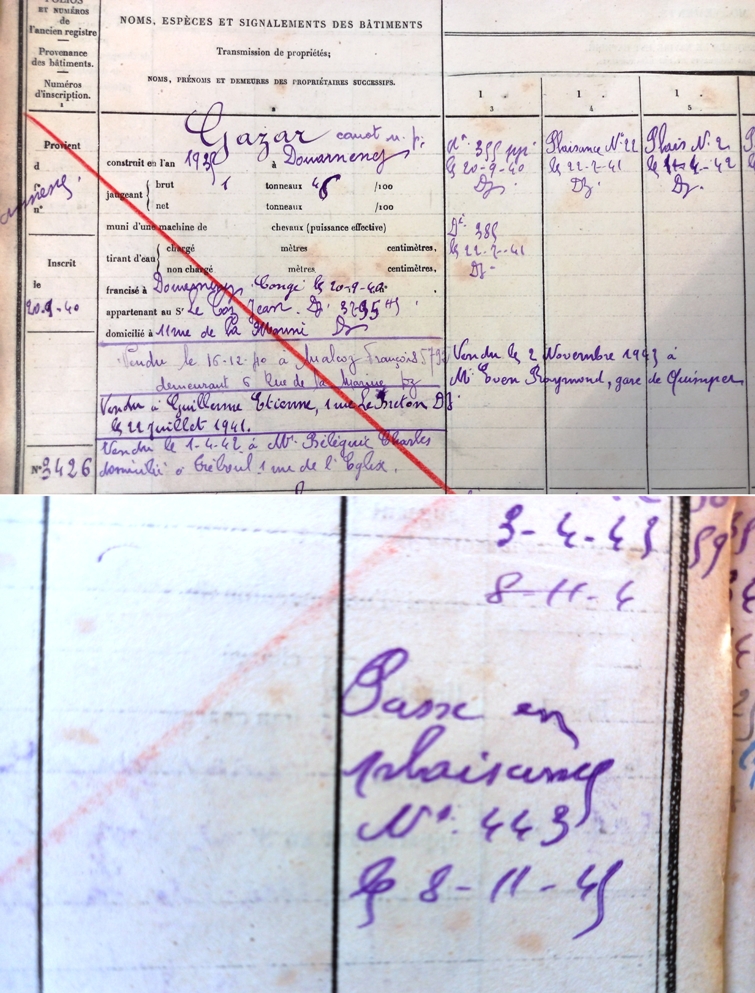 FOLIOS
ET NUMÉROS
de
l'ancien registre
Provenance
des bâtiments.
Numéros
d'inscription.
1
NOMS, ESPÈCES ET SIGNALEMENTS DES BÂTIMENTS
Transmission de propriétés;
NOMS, PRÉNOMS ET DEMEURES DES PROPRIÉTAIRES SUCCESSIFS.
2
1
3
1
4
1
5
Provient
d
f°
n°
annexe
Inscrit
le
20.9-40
N° 3426
Gazar canot n. p.
construit en l'an 1935 à Douarnenez
jaugeant brut 1 tonneaux /100
net tonneaux /100
muni d'une machine de chevaux (puissance effective)
tirant d'eau chargé mètres centimètres.
non chargé mètres centimètres.
francisé à Douarnenez Congé le 20-9-40
appartenant au Sr Le Jean. Dz 3795
domicilié à 11 rue de la Dz
Vendu le 16-12-40 à Malcoz François
demeurant 6 Rue de la Marine Dz
Vendu à Guillerme Etienne, 1 rue Le Breton Dz.
le 22 juillet 1941.
Vendu le 1-4-42 à Mr Béléguic Charles
domicilié à Tréboul 1 rue de l'Eglise.
Dz. 355 pp
le 20-9-40
Dz.
Dz. 385
le 22-7-41
Dz-
Plaisance N° 22
le 22-7-41
Dz.
Plais N. 2
le 1-4-42
Dz.
Vendu le 2 Novembre 1943 à
Mr Even Raymond, gare de Quimper
3-4-43
8-11-4
Passe en
plaisance
N° 443
le 8-11-45